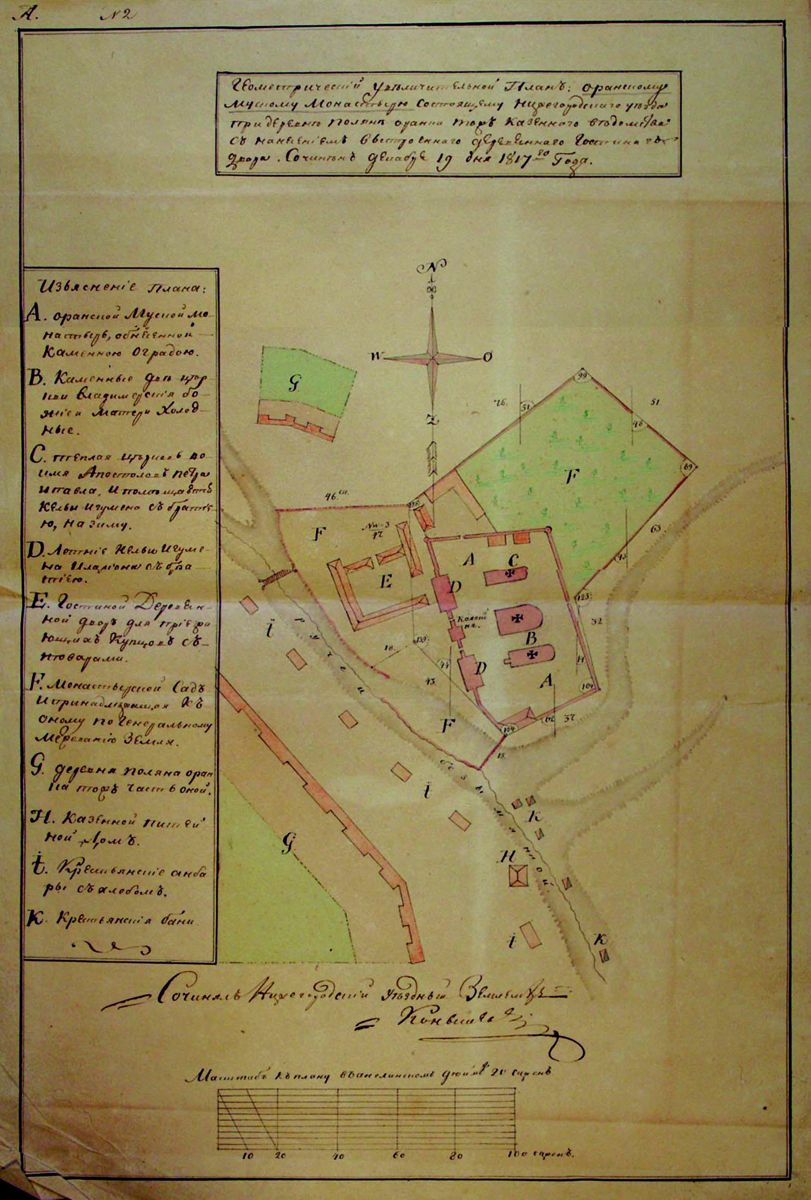 A.
N 2
Геометрический увеличительной Планъ: оранскому
Мускому Монастырю состоящему Нижегородского уезда
при деревне поляне оранки торъ Казенного ведомства
съ нанесениемъ выстроенного деревенного Гостина
двора. Сочиненъ декабре 19 дня 1817го Года.
Изъяснение плана:
A. оранской Муской мо-
настырь, обнесенной
Каменною Оградою.
B. Каменные две цер
кви владимерския бо
жией Матери Холод-
ные.
C. теплая церковь во
имя Апостоловъ петра
и павла, и помещаютъ
кельи игумена съ брать-
ею, на зиму.
D. Летние Кельи Игуме-
на с бра
тиею.
E. Гостиной Деревен-
ной дворъ для приез
ющихъ Купцовъ съ
товарами.
F. Монастырской Садъ
и принадлежащая къ
оному по Генеральному
Межеванию Земля.
G. деревня поляна оран
ка торъ часть оной.
H. Казенной питей
ной домъ.
i. Крестьянские анба
ры съ хлебомъ.
K. Крестьянския бани
N
W
O
Z
G
F
F
E
A
C
D
B
D
A
F
i
i
i
G
H
K
K
46 са.
99
51
51
46
69
63
32
104
37
43
10
15
Сочинялъ Нижегородский уездный Землемеръ
Масштабъ къ плану въ аглинскомъ дюйме 20 саженъ
10 20 40 60 80 100 сажен.